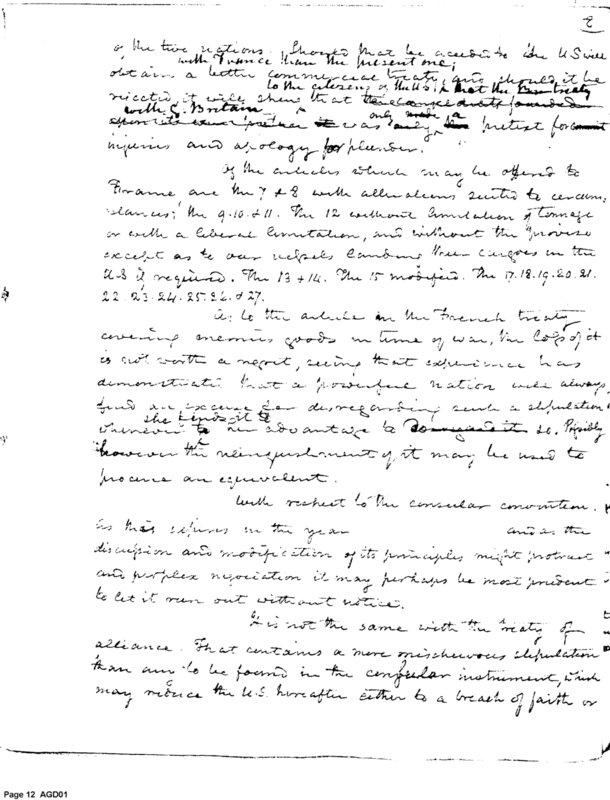 2
of the two nations. Should that be acceded to the U S will
with France than the present one;
obtain a better commercial treaty, and should it be
to the citizens of the U.S. that the treaty
rejected it will shew that
with G. Britain
was only a pretext for
injuries and apology for plunder.
Of the articles which may be offered to
France are the 7 & 8 with alterations suited to circum=
stances; the 9. 10. & 11. The 12 without limitation of tonnage
or with a liberal limitation, and without the proviso
except as to our vessels landing their cargoes in the
U S if required. The 13 & 14. The 15 modified. The 17. 18. 19. 20. 21.
22. 23. 24. 25. 26. & 27.
As to the article in the French treaty
covering enemies goods in time of war, the loss of it
is not worth a regret, seeing that experience has
demonstrated that a powerful nation will always
find an excuse for disregarding such a stipulation
she finds it to
whenever her advantage to do so. Possibly
however the relinquishment of it may be used to
procure an equivalent.
With respect to the consular convention.
as this expires in the year and as the
discussion and modification of its principles might protract
and perplex negociation it may perhaps be most prudent
to let it run out without notice.
It is not the same with the treaty of
alliance. That contains a more mischievous stipulation
than any to be found in the consular instrument, which
may reduce the U.S. hereafter either to a breach of faith or
Page 12 AGD01